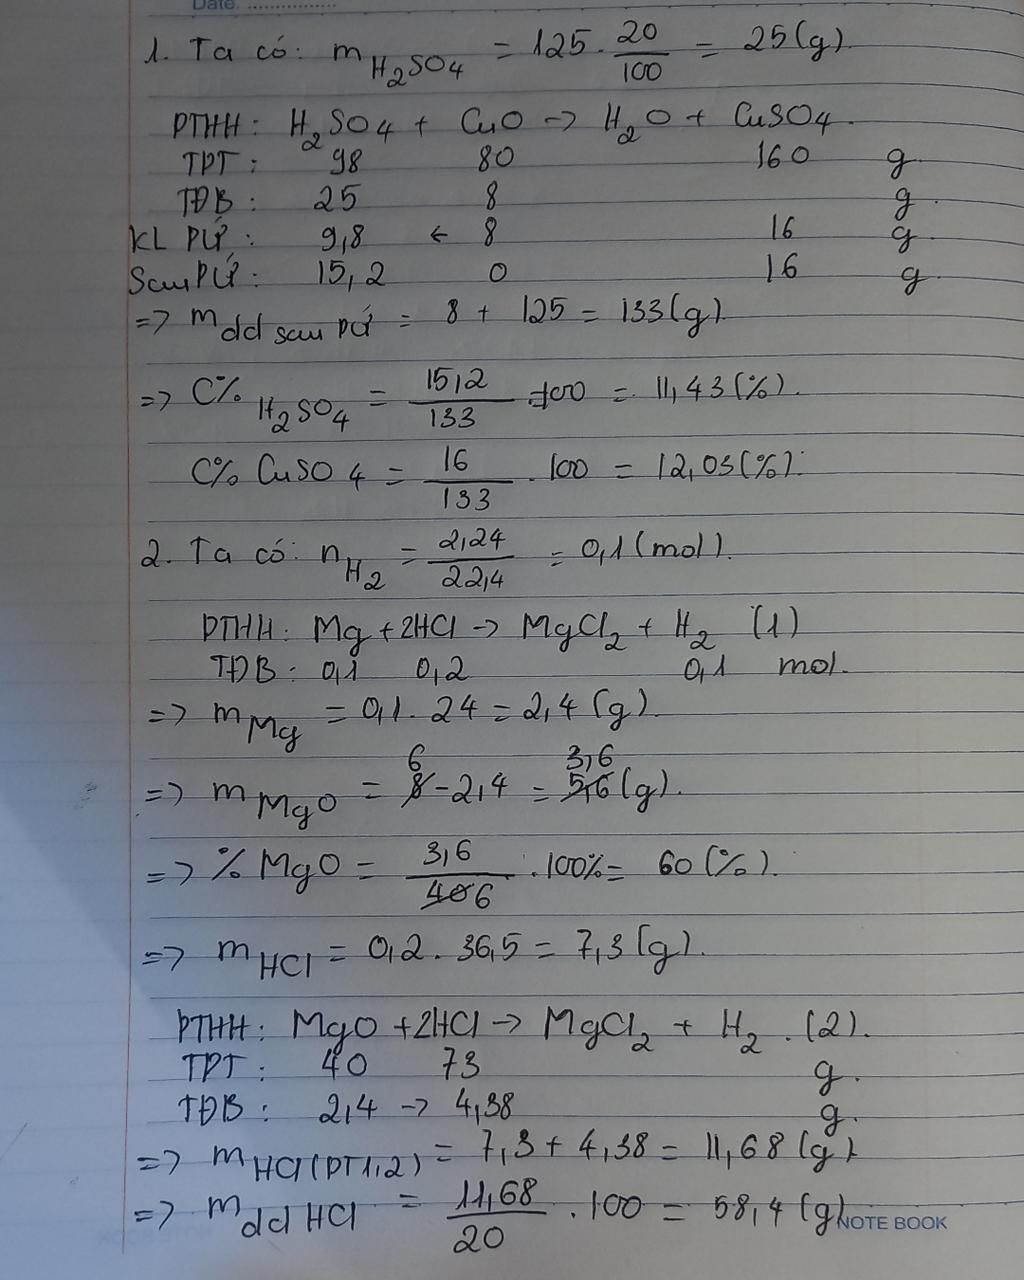 Date. ................
1. Ta có: m H₂SO₄ = 125 . 20/100 = 25 (g).
PTHH: H₂SO₄ + CuO -> H₂O + CuSO4.
TPT: 98 80 160 g.
TĐB: 25 8 g.
KL PƯ: 9,8 ← 8 16 g.
Sau PƯ: 15,2 0 16 g.
=> m dd sau pứ = 8 + 125 = 133 (g)
=> C% H₂SO₄ = 15,2/133 .100 = 11,43 (%).
C% CuSO4 = 16/133 . 100 = 12,03 (%).
2. Ta có: n H₂ = 2,24/22,4 = 0,1 (mol).
PTHH: Mg + 2HCl -> MgCl₂ + H₂ (1)
TĐB: 0,1 0,2 0,1 mol.
=> m Mg = 0,1 . 24 = 2,4 (g).
=> m MgO = 6 - 2,4 = 3,6 (g).
=> % MgO = 3,6/6 . 100% = 60 (%).
=> m HCl = 0,2 . 36,5 = 7,3 (g).
PTHH: MgO + 2HCl -> MgCl₂ + H₂ . (2).
TPT: 40 73 g.
TĐB: 2,4 -> 4,38 g.
=> m HCl (PT1,2) = 7,3 + 4,38 = 11,68 (g)
=> m dd HCl = 11,68/20 . 100 = 58,4 (g)
NOTE BOOK